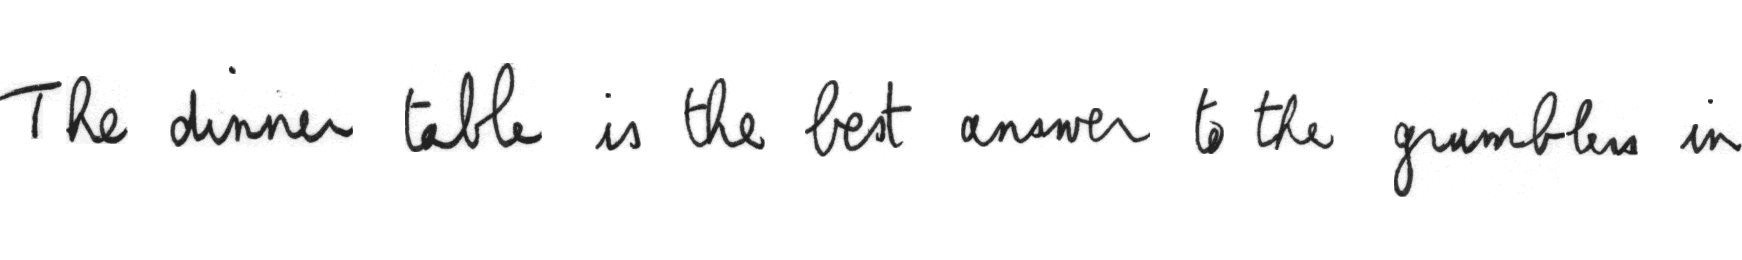 The dinner table is the best answer to the grumblers in